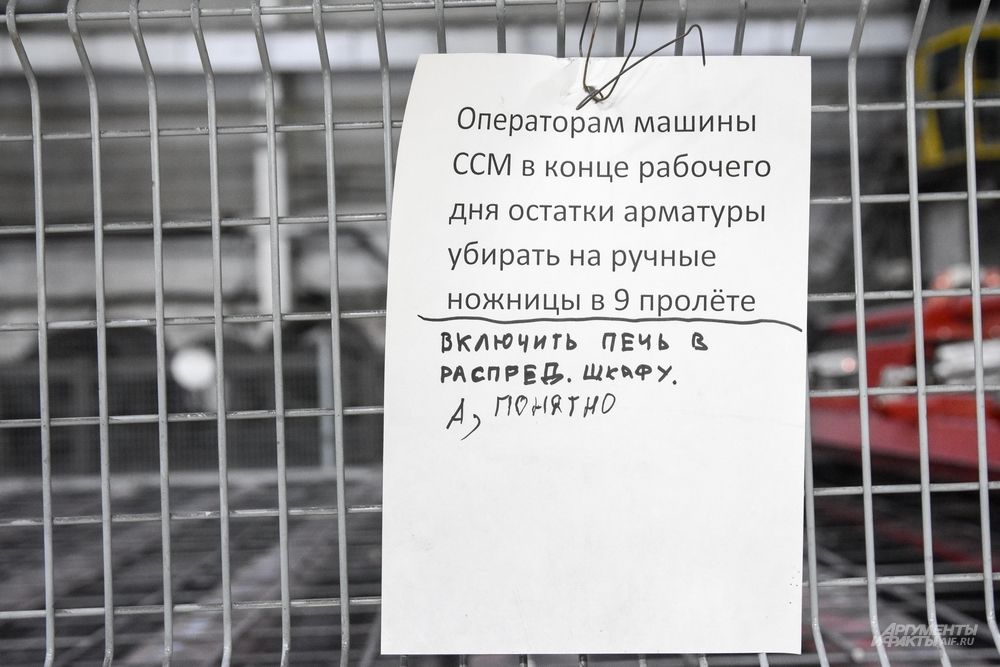 Операторам машины
ССМ в конце рабочего
дня остатки арматуры
убирать на ручные
ножницы в 9 пролёте
ВКЛЮЧИТЬ ПЕЧЬ В
РАСПРЕД. ШКАФУ.
А, ПОНЯТНО
АРГУМЕНТЫ
И ФАКТЫ AIF.RU